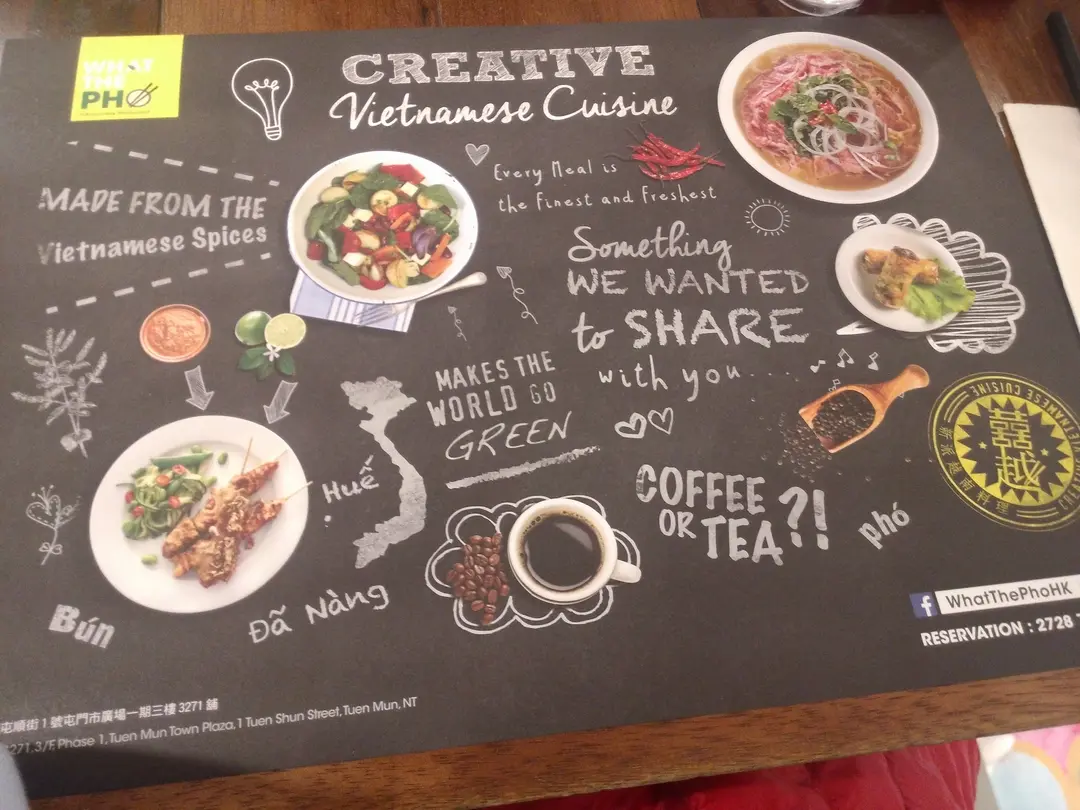 WHAT
THE
PHO
CREATIVE
Vietnamese Cuisine
MADE FROM THE
Vietnamese Spices
Every Meal is
the Finest and Freshest
Something
WE WANTED
to SHARE
with you....
MAKES THE
WORLD GO
GREEN
Huế
COFFEE
OR TEA?!
phó
Bún
Đã Nàng
VIETNAMESE CUISINE
f WhatThePhoHK
RESERVATION : 2728
屯順街 1 號屯門市廣場一期三樓 3271 舖
3271, 3/F, Phase 1, Tuen Mun Town Plaza, 1 Tuen Shun Street, Tuen Mun, NT